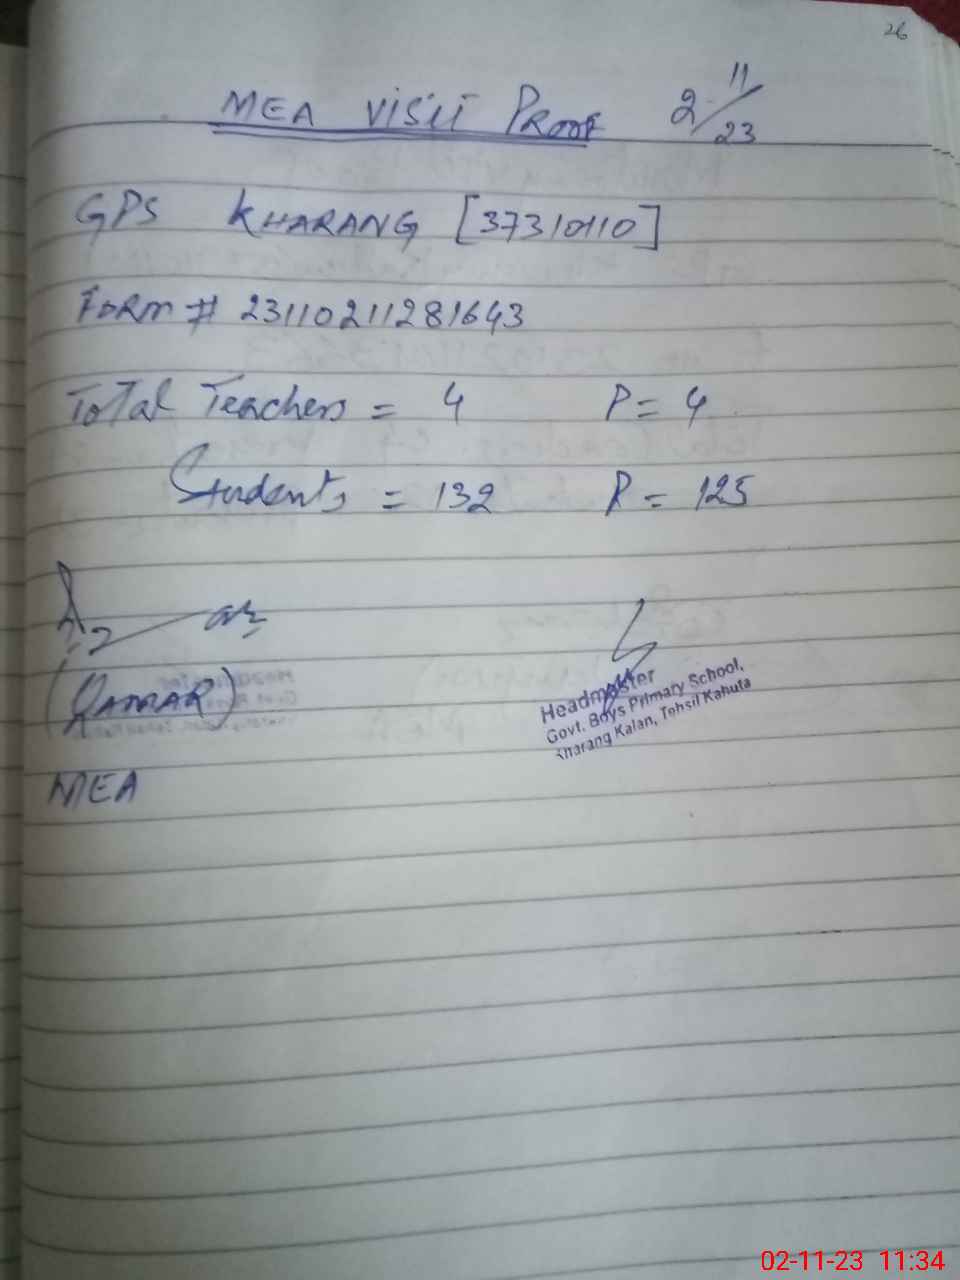 26
MEA VISIT PROOF 2/11/23
GPS KHARANG [37310110]
FORM # 23110211281643
Total Teachers = 4 P = 4
Students = 132 P = 125
(QAMAR)
MEA
Headmaster
Govt. Boys Primary School,
Kharang Kalan, Tehsil Kahuta
02-11-23 11:34